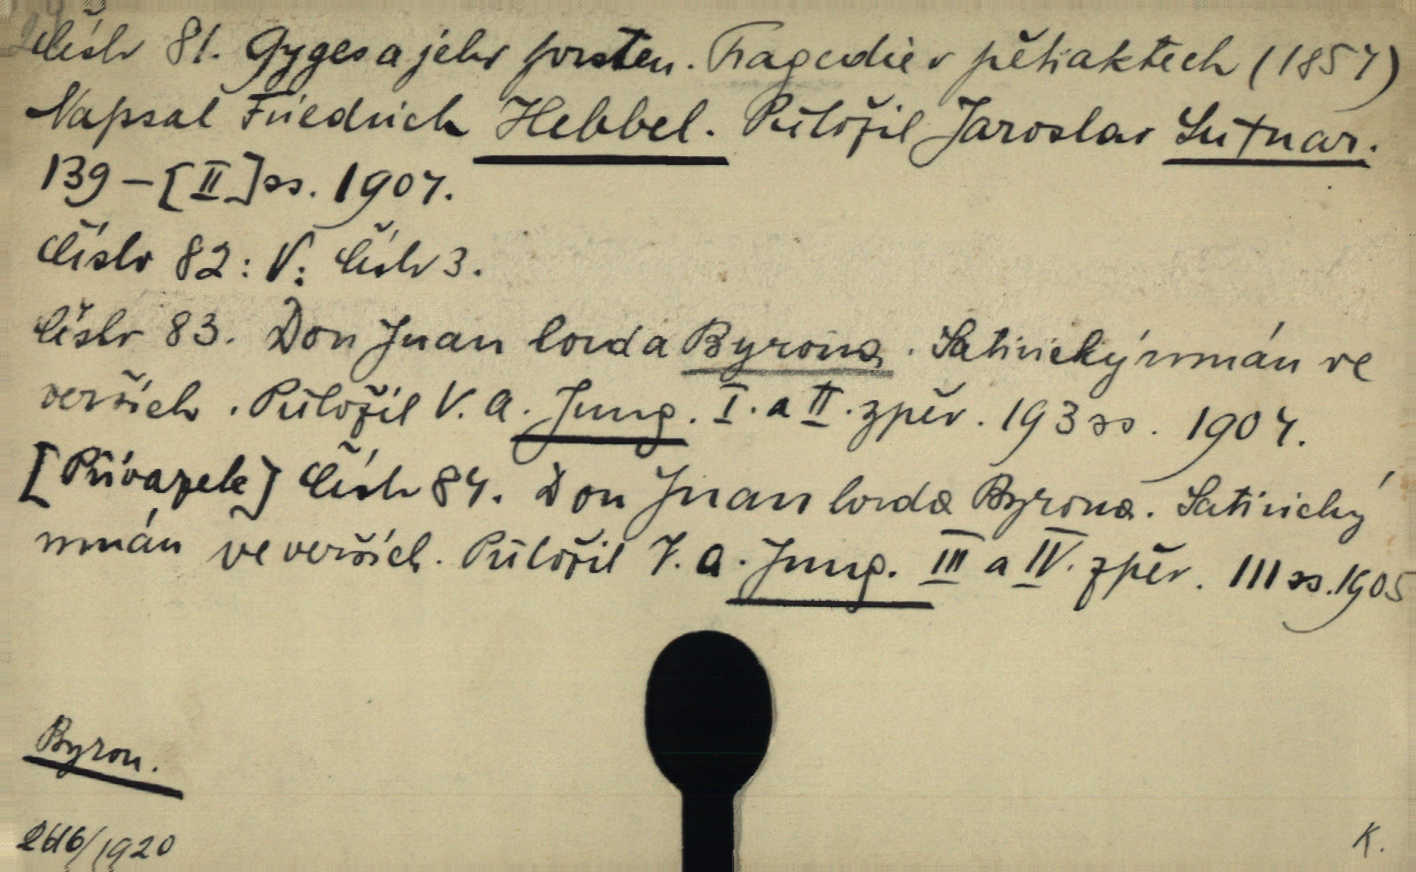 Číslo 81. Gyges a jeho prsten. Tragedie v pěti aktech (1857)
Napsal Friedrich Hebbel. Přeložil Jaroslav Sutnar.
139 – [II] ss. 1907.
Číslo 82: V: Číslo 3.
Číslo 83. Don Juan lorda Byrona. Satirický román ve
verších. Přeložil V. A. Jung. I. a II. zpěv. 193 ss. 1904.
[Přívazek] Číslo 84. Don Juan lorda Byrona. Satirický
román ve verších. Přeložil V. A. Jung. III a IV. zpěv. 111 ss. 1905
Byron.
/1920
K.